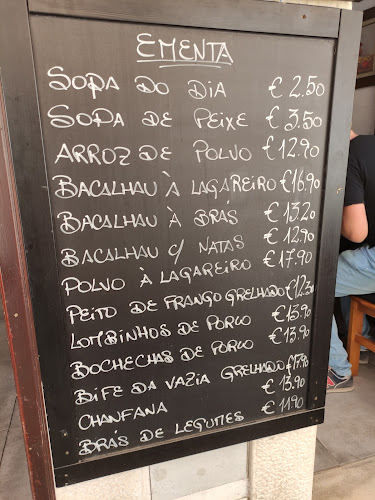 EMENTA
SOPA DO DIA € 2.50
SOPA DE PEIXE € 3.50
ARROZ DE POLVO € 12.90
BACALHAU À LAGAREIRO €16.90
BACALHAU À BRÁS € 13.20
BACALHAU C/ NATAS € 12.90
POLVO À LAGAREIRO € 17.90
PEITO DE FRANGO GRELHADO €12.30
LOMBINHOS DE PORCO € 13.90
BOCHECHAS DE PORCO € 13.90
BIFE DA VAZIA GRELHADO €17.90
CHANFANA € 13.90
BRÁS DE LEGUMES € 11.90